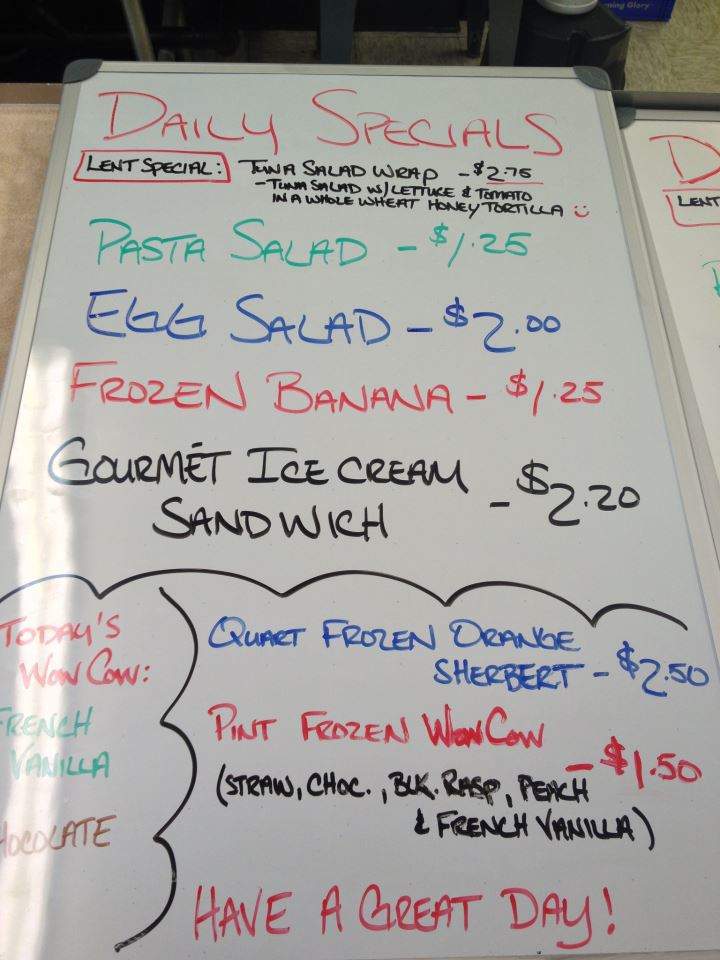 ming Glory
DAILY SPECIALS
LENT SPECIAL: TUNA SALAD WRAP - $2.75
- TUNA SALAD W/ LETTUCE & TOMATO
IN A WHOLE WHEAT HONEY TORTILLA
PASTA SALAD - $1.25
EGG SALAD - $2.00
FROZEN BANANA - $1.25
GOURMÉT ICE CREAM
SANDWICH - $2.20
TODAY'S
WOW COW:
FRENCH
VANILLA
HOCOLATE
QUART FROZEN ORANGE
SHERBERT - $2.50
PINT FROZEN WOW COW
- $1.50
(STRAW, CHOC., BLK. RASP, PEACH
& FRENCH VANILLA)
HAVE A GREAT DAY!
D
LENT